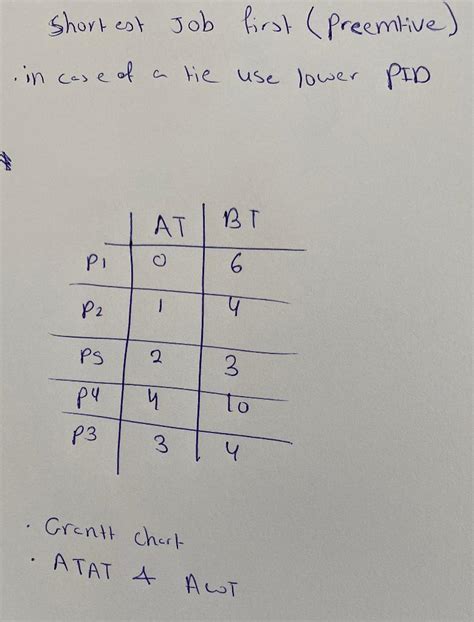 Shortest Job first (Preemtive)
. in case of a tie use lower PID
AT BT
P1 0 6
P2 1 4
P5 2 3
P4 4 10
P3 3 4
. Grantt chart
. ATAT & AWT